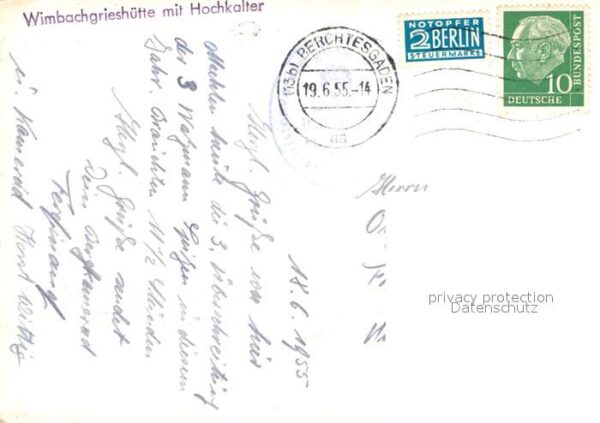 Wimbachgrieshütte mit Hochkalter
NOTOPFER
2 BERLIN
STEUERMARKE
DEUTSCHE
BUNDESPOST
10
(13b) BERCHTESGADEN
19.6.55.-14
aa
18.6.1955
Herzl. Grüße von hier
Machten heute die 3. Überschreitung
der 3 Watzmann Spitzen in diesem
Jahr. Brauchten 11 1/2 Stunden
Herzl. Grüße sendet
Dein Bergkamerad
Ferdinand
u. Kamerad Horst
Herrn
privacy protection
Datenschutz